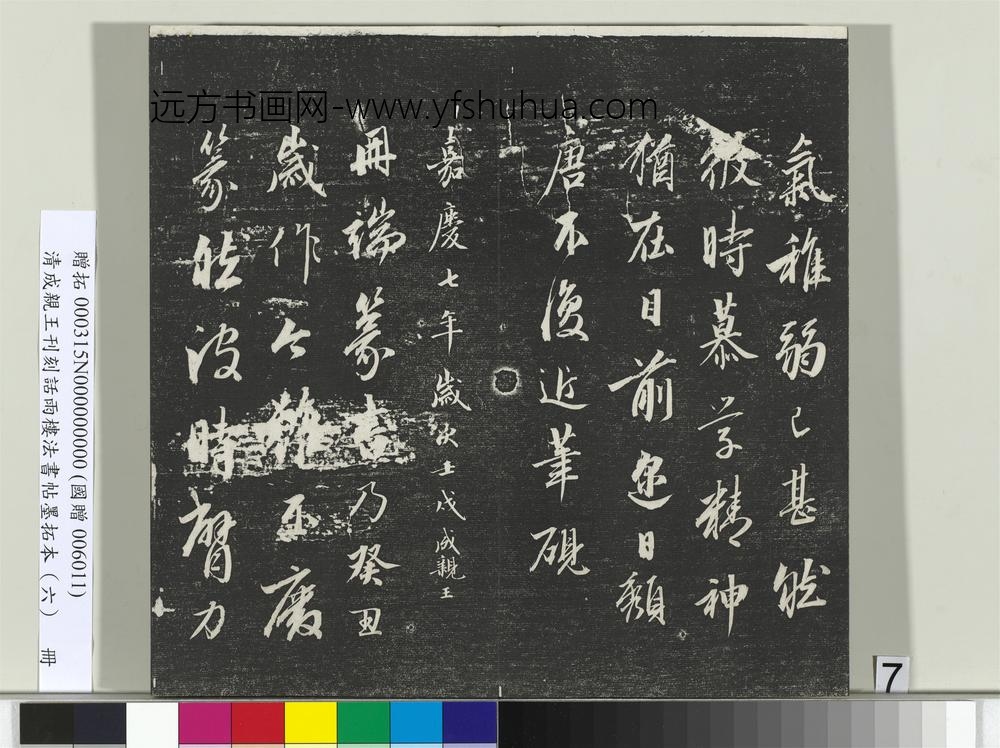 远方书画网-www.yfshuhua.com
氣稚弱已甚然
彼時慕学精神
猶在目前迩日頹
唐不復近筆硯
嘉慶七年歲次壬戌成親王
冊端篆書乃癸丑
歲作今廢
篆然彼時臂力
贈拓 000315N000000000 (國贈 006011)
清成親王刊刻話雨樓法書帖墨拓本（六） 冊
7